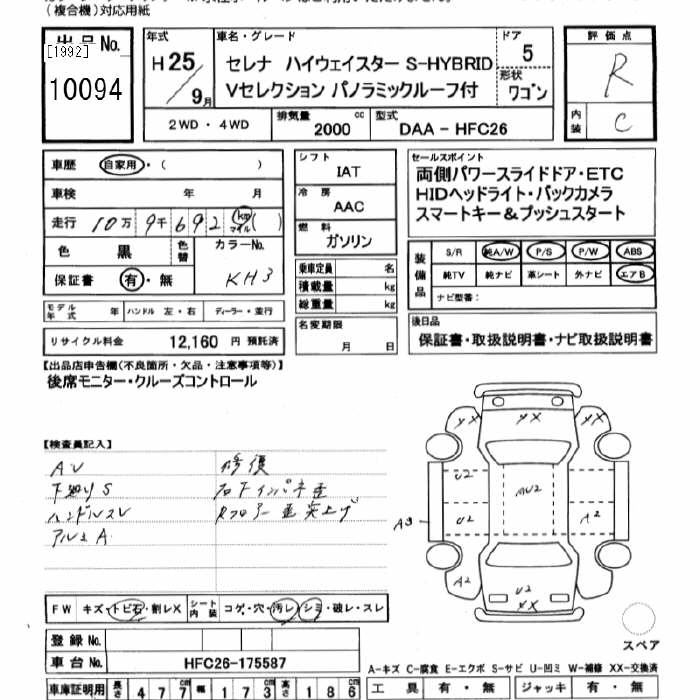 (複合機)対応用紙
出品No.
[1992]
10094
年式
H25/9月
車名・グレード
セレナ ハイウェイスター S-HYBRID
Vセレクション パノラミックルーフ付
ドア
5
形状
ワゴン
評価点
R
内装
C
2WD・4WD
排気量
2000 cc
型式
DAA-HFC26
車歴
自家用・( )
車検 年 月
走行 10万9千692 km マイル ( )
色 黒
色替
カラーNo.
KH3
保証書 有・無
モデル年式 年
ハンドル 左・右
ディーラー・並行
リサイクル料金 12,160 円 預託済
シフト
IAT
冷房
AAC
燃料
ガソリン
乗車定員 名
積載量 kg
総重量 kg
名変期限
月 日
セールスポイント
両側パワースライドドア・ETC
HIDヘッドライト・バックカメラ
スマートキー&プッシュスタート
装備品
S/R 純A/W P/S P/W ABS
純TV 純ナビ 革シート 外ナビ エアB
ナビ型番:
後日品
保証書・取扱説明書・ナビ取扱説明書
【出品店申告欄(不良箇所・欠品・注意事項等)】
後席モニター・クルーズコントロール
【検査員記入】
AU
下廻りS
ハンドルスレ
アルミA
修復
右下インパネ歪
Rフロアー歪突上げ
FW キズ・トビ石・割レX
シート内装 コゲ・穴・汚レ・シミ・破レ・スレ
登録No.
車台No. HFC26-175587
車庫証明用 長さ 477cm 幅 173cm 高さ 186cm
YX XX
U2
MU2
U2
A3
A2
A2
U2
XX
スペア
A-キズ C-腐食 E-エクボ S-サビ U-凹ミ W-補修 XX-交換済
工具 有・無
ジャッキ 有・無